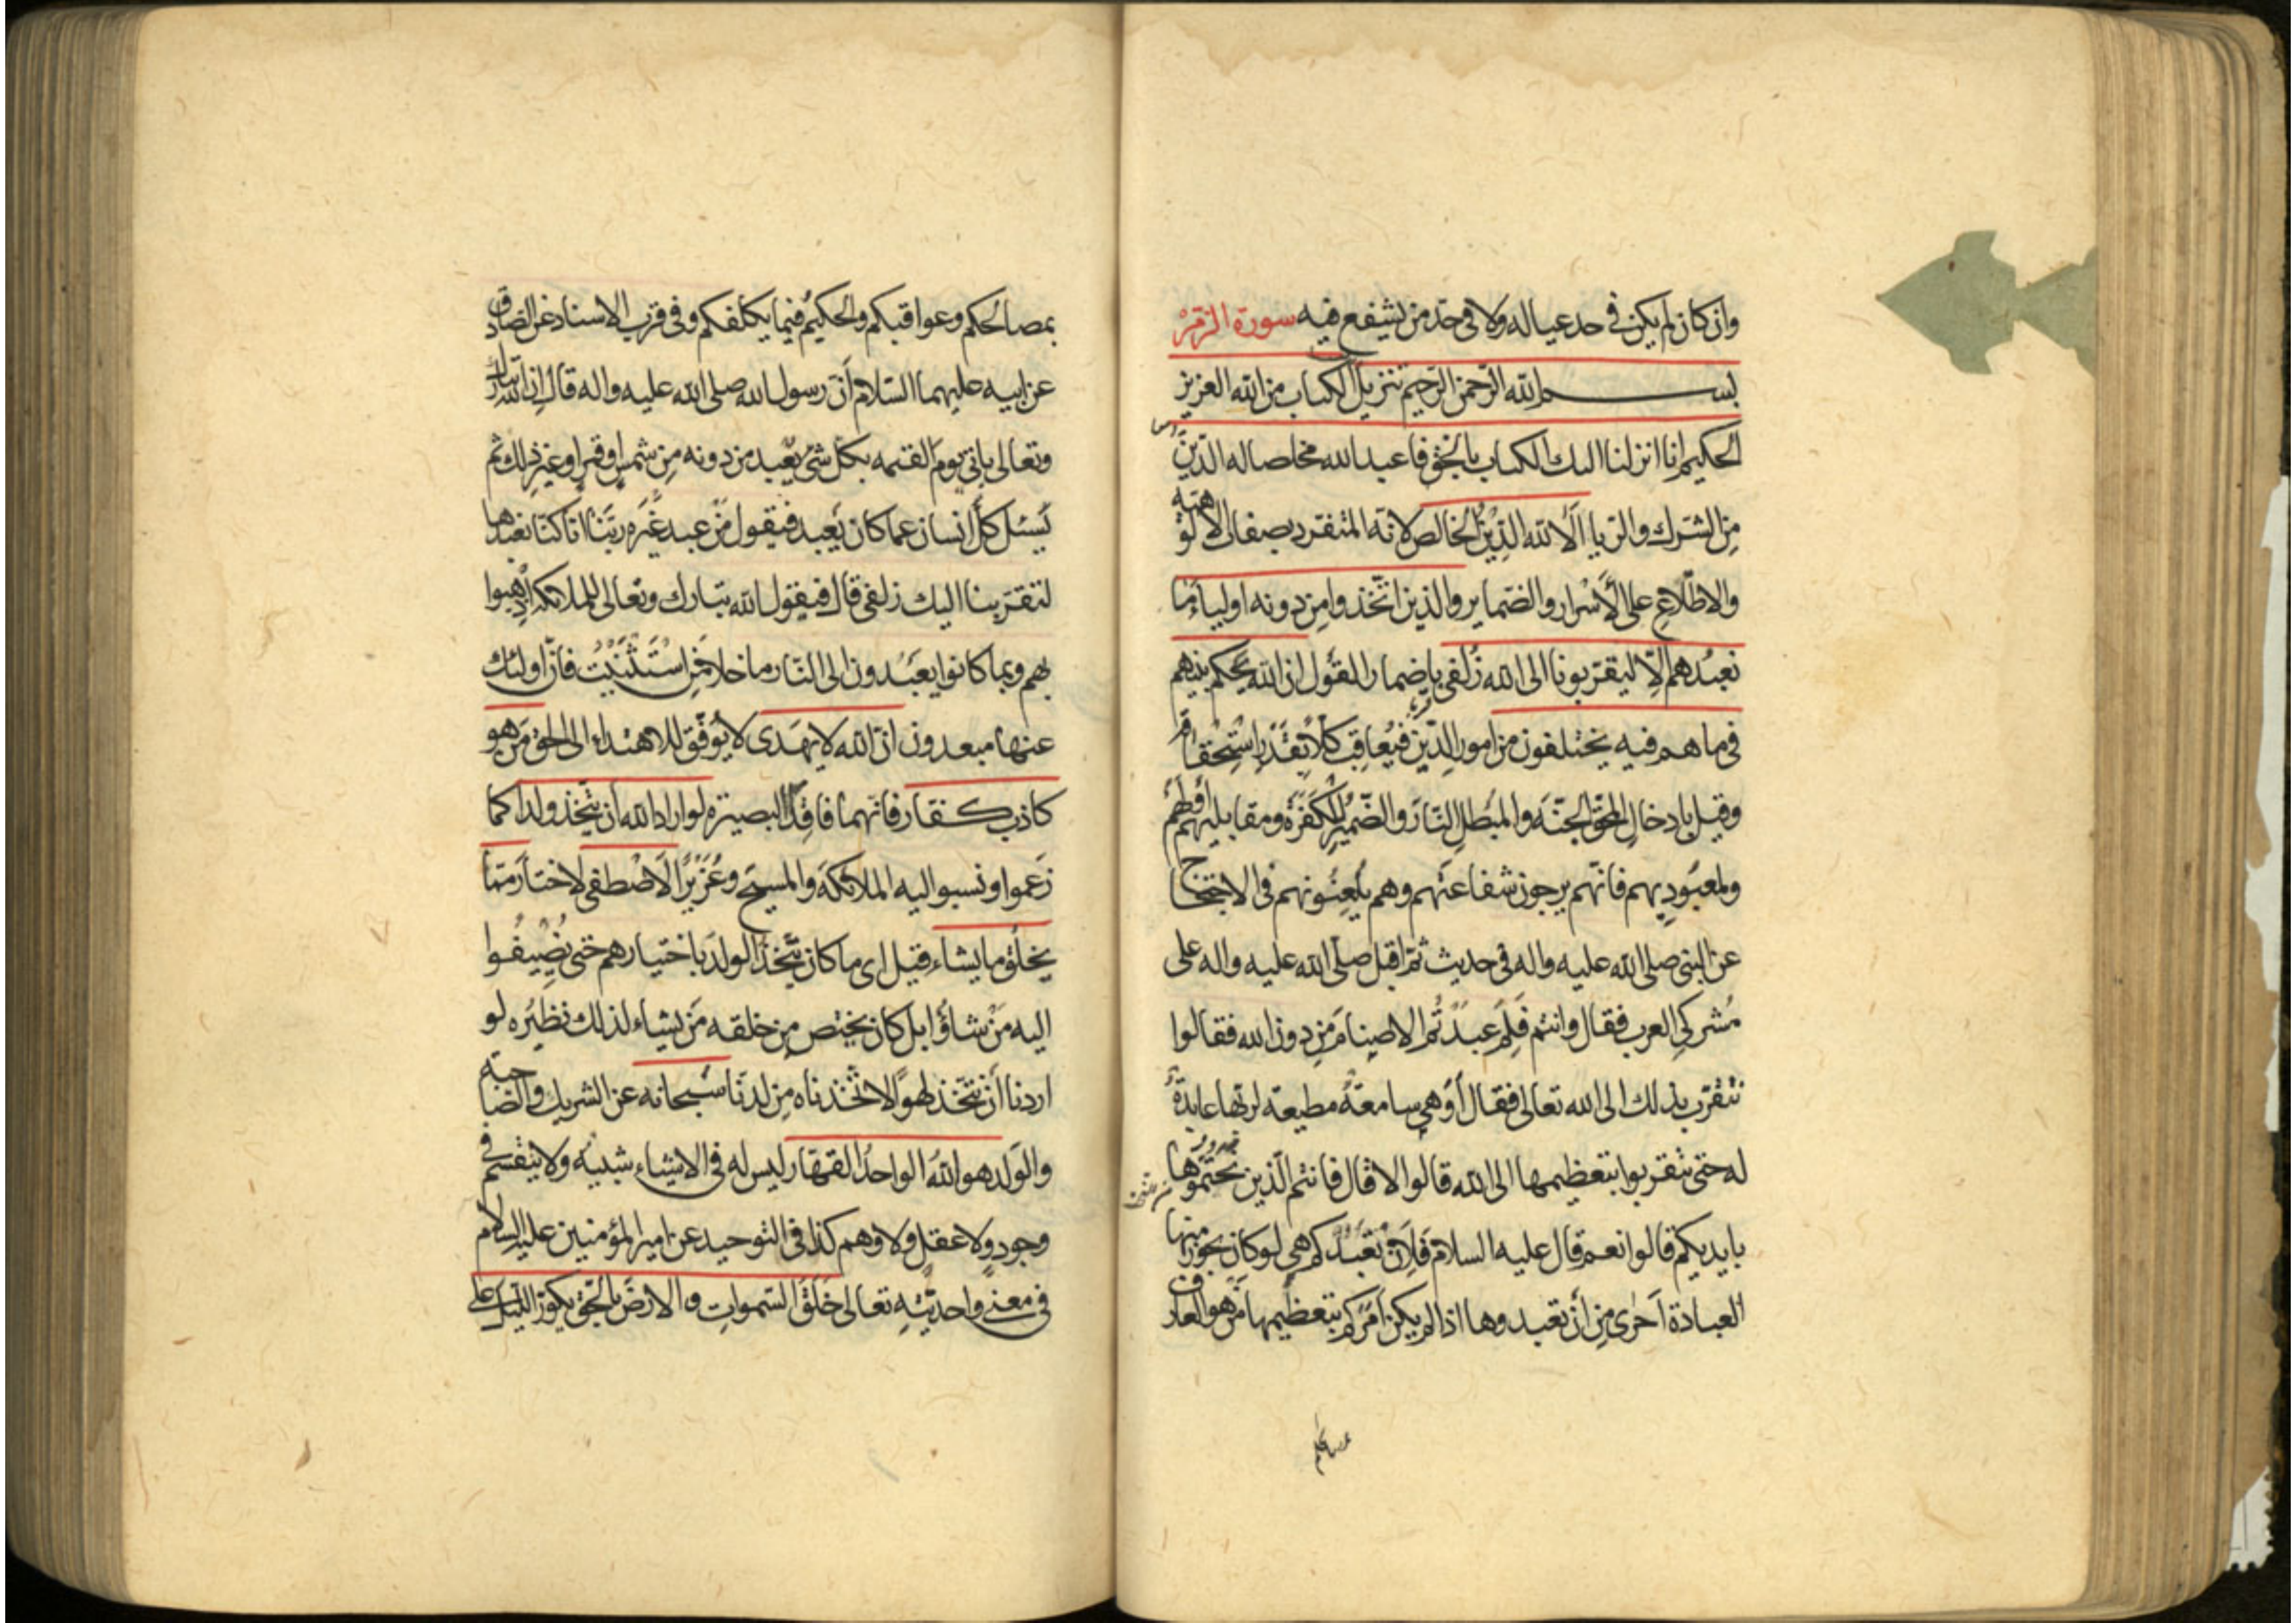 وان كان لم يكن في حد عياله ولا في حد من يشفع فيه سورة الزمر
بسم الله الرحمن الرحيم تنزيل الكتاب من الله العزيز
الحكيم انا انزلنا اليك الكتاب بالحق فاعبد الله مخلصا له الدين
من الشرك والريا الا لله الدين الخالص لانه المتفرد بصفات الالوهية
والاطلاع على الأسرار والضماير والذين اتخذوا من دونه اولياء ما
نعبدهم الا ليقربونا الى الله زلفى باضمار القول ان الله يحكم بينهم
في ما هم فيه يختلفون من امور الدين فيعاقب كلا بقدر استحقاقه
وقيل بادخال المحق الجنة والمبطل النار والضمير للكفرة ومقابليهم أولهم
ولمعبوديهم فانهم يرجون شفاعتهم وهم يلعنونهم في الاحتجاج
عن النبي صلى الله عليه واله في حديث ثم اقبل صلى الله عليه واله على
مشركي العرب فقال وانتم فلم عبدتم الاصنام من دون الله فقالوا
نتقرب بذلك الى الله تعالى فقال أوهي سامعة مطيعة لربها عابدة
له حتى تتقربوا بتعظيمها الى الله قالوا لا قال فانتم الذين نحتموها
بايديكم قالوا نعم قال عليه السلام فلان تعبدكم هي لو كان يجوز منها
العبادة أحرى من أن تعبدوها اذا لم يكن أمركم بتعظيمها من هو العارف
بمصالحكم وعواقبكم والحكيم فيما يكلفكم وفي قرب الاسناد عن الصادق
عن ابيه عليهما السلام أن رسول الله صلى الله عليه واله قال إن الله تبارك
وتعالى ياتي يوم القيمه بكل شئ يعبد من دونه من شمس او قمر او غير ذلك ثم
يسئل كل انسان عما كان يعبد فيقول من عبد غيره ربنا انا كنا نعبدها
لتقربنا اليك زلفى قال فيقول الله تبارك وتعالى للملائكة اذهبوا
بهم وبما كانوا يعبدون الى النار ما خلا من استثنيت فان اولئك
عنها مبعدون ان الله لا يهدى لا يوفق للاهتداء الى الحق من هو
كاذب كفار فانهما فاقدا البصيرة لو اراد الله أن يتخذ ولدا كما
زعموا ونسبوا اليه الملائكة والمسيح وعزيرا لاصطفى لاختار مما
يخلق ما يشاء قيل اى ما كان يتخذ الولد باختيارهم حتى يضيفوا
اليه من شاؤا بل كان يختص من خلقه من يشاء لذلك نظيره لو
اردنا أن نتخذ لهوا لاتخذناه من لدنا سبحانه عن الشريك والصاحبة
والولد هو الله الواحد القهار ليس له في الاشياء شبيه ولا ينقسم في
وجود ولا عقل ولا وهم كذا في التوحيد عن امير المؤمنين عليه السلام
في معنى واحديته تعالى خلق السموات والارض بالحق يكور الليل على